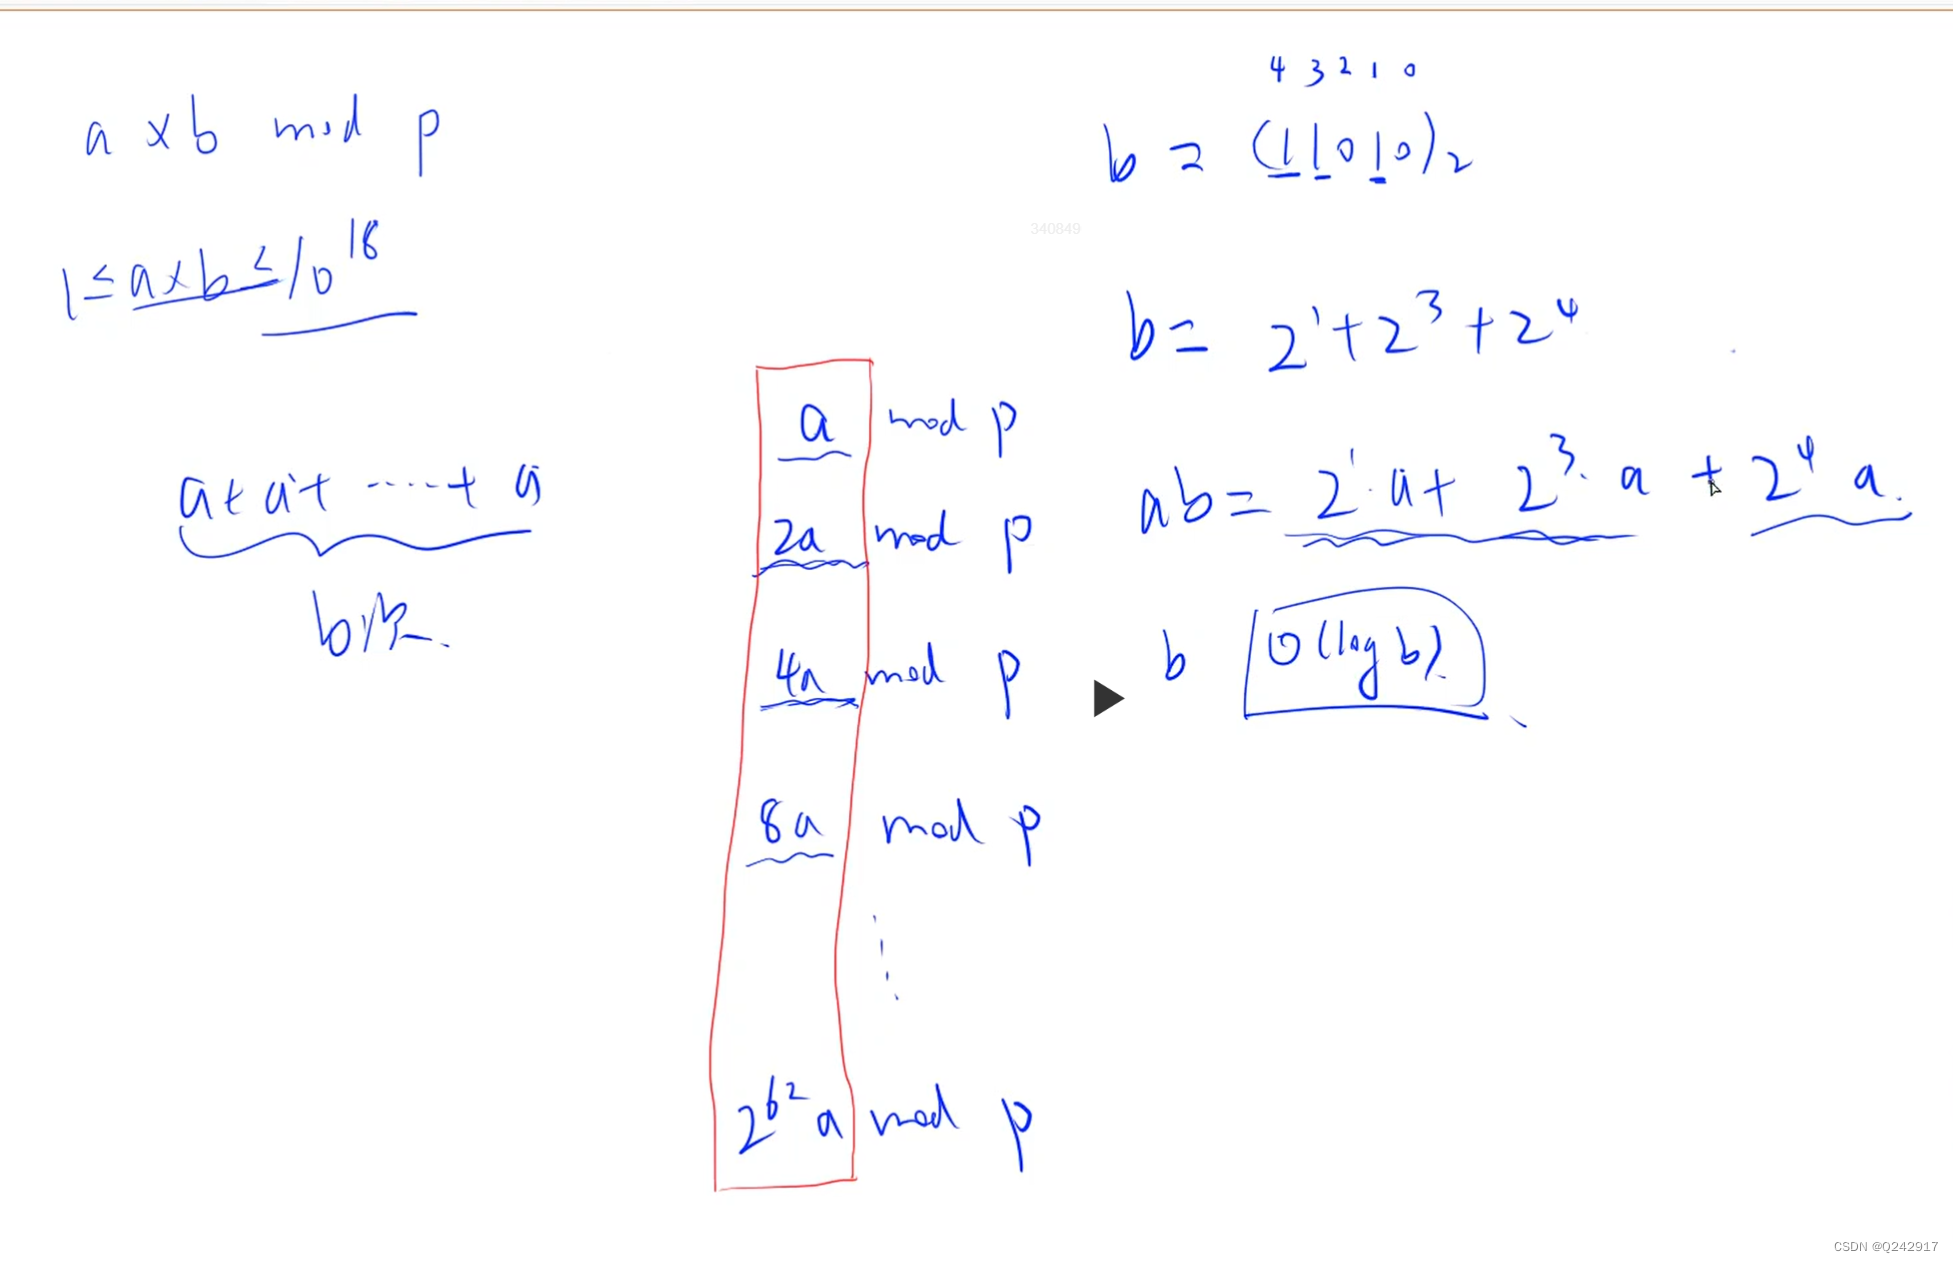 a × b mod p
1 ≤ a×b ≤ 10^18
a + a + ····· + a
b个
a mod p
2a mod p
4a mod p
8a mod p
⋮
2^62 a mod p
4 3 2 1 0
b = (11010)₂
340849
b = 2^1 + 2^3 + 2^4
ab = 2^1·a + 2^3·a + 2^4 a.
b O(log b)
CSDN @Q242917